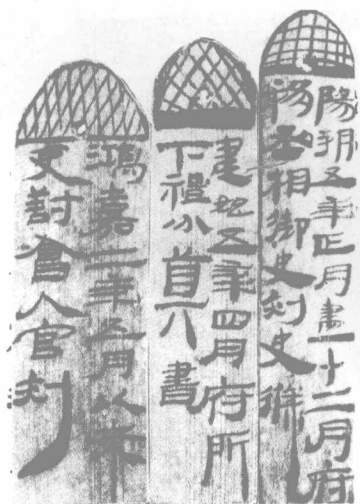 陽朔五年正月盡十二月府
移丞相御史刺史條
建始五年四月府所
下禮分 書
鴻嘉二年五月以來
吏對會入官刺